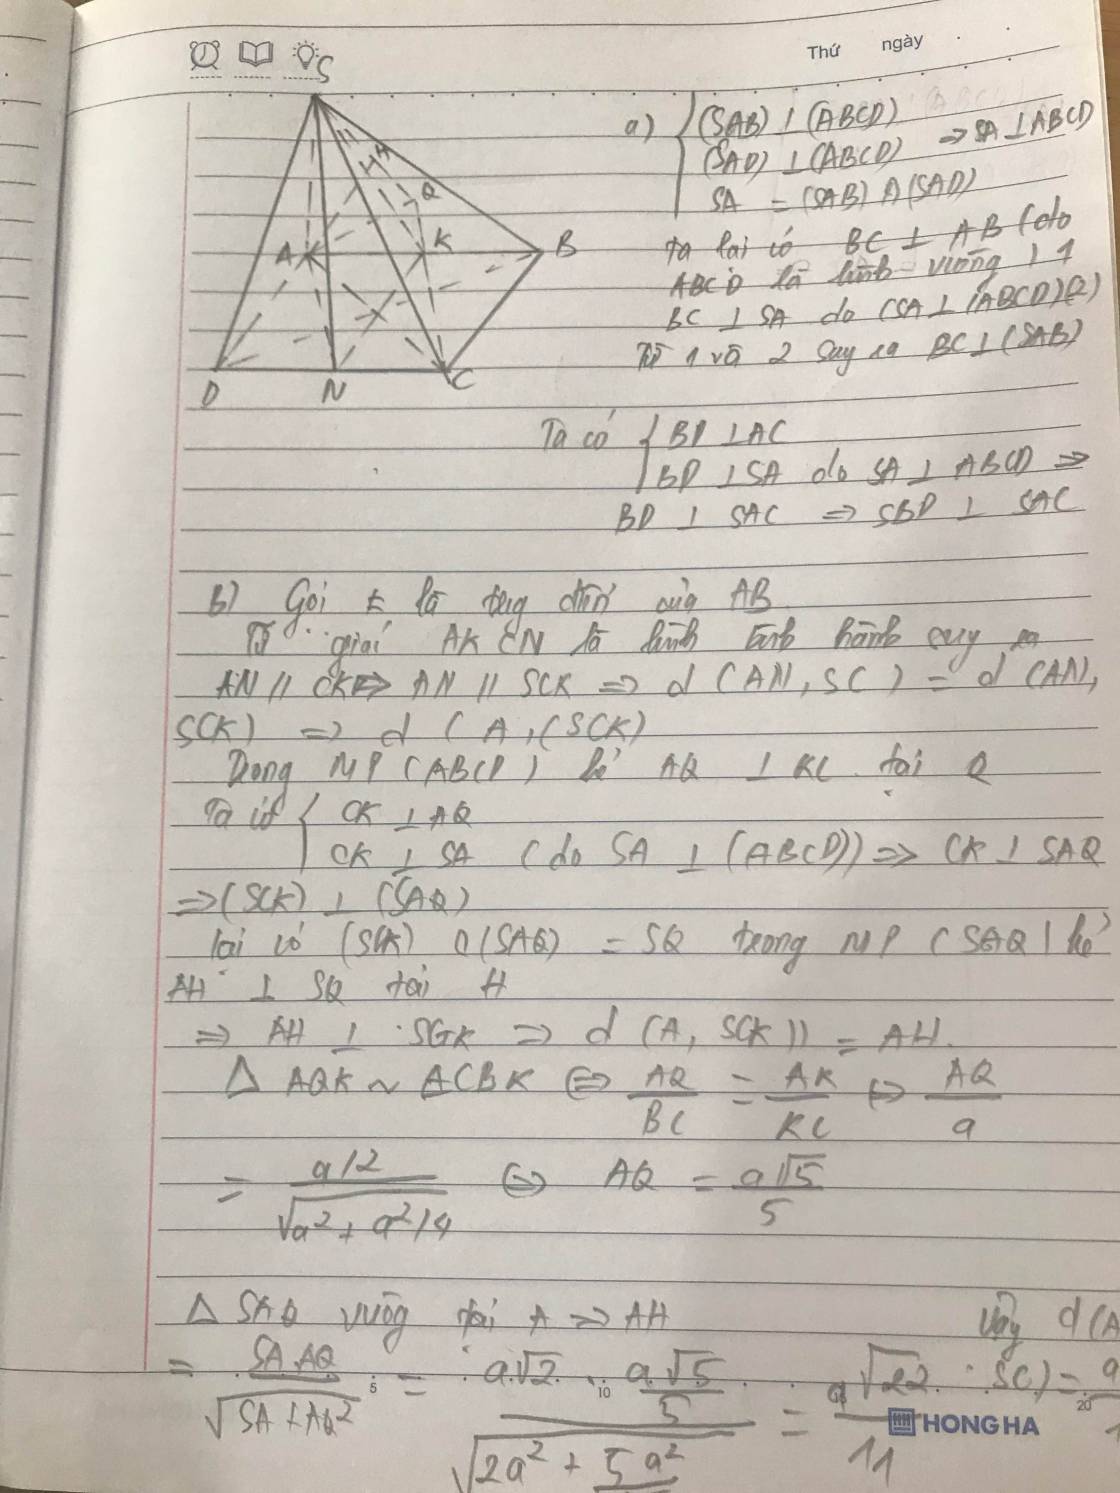 Thứ ngày
S
H
Q
A
K
B
D
N
C
a) { (SAB) ⊥ (ABCD)
(SAD) ⊥ (ABCD) => SA ⊥ ABCD
SA = (SAB) ∩ (SAD)
Ta lại có BC ⊥ AB (do
ABCD là hình vuông) 1
BC ⊥ SA do (SA ⊥ (ABCD)(2)
Từ 1 và 2 suy ra BC ⊥ (SAB)
Ta có { BD ⊥ AC
BD ⊥ SA do SA ⊥ ABCD =>
BD ⊥ SAC => SBD ⊥ SAC
b) Gọi K là trung điểm của AB
Tứ giác AKCN là hình bình hành suy ra
AN // CK => AN // SCK => d (AN, SC) = d (AN,
SCK) => d (A, (SCK)
Trong MP (ABCD) kẻ AQ ⊥ KC tại Q
Ta có { CK ⊥ AQ
CK ⊥ SA (do SA ⊥ (ABCD)) => CK ⊥ SAQ
=> (SCK) ⊥ (SAQ)
lại có (SCK) ∩ (SAQ) = SQ trong MP (SAQ) kẻ
AH ⊥ SQ tại H
=> AH ⊥ SCK => d (A, SCK)) = AH.
Δ AQK ~ ΔCBK <=> AQ/BC = AK/KC <=> AQ/a
= (a/2)/√(a²+a²/4) <=> AQ = a√5/5
Δ SAQ vuông tại A => AH Vậy d(A
= SA.AQ/√(SA+AQ²) = (a√2 . a√5/5)/√(2a² + 5a² = a√22/11 SC) = a
5 10 20
HONG HA